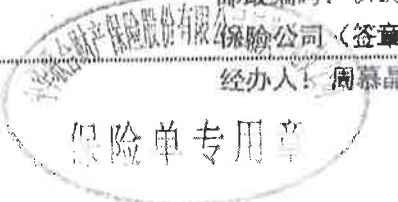 保险公司（签章
经办人：周慕晶
中华联合财产保险股份有限公
保险单专用章